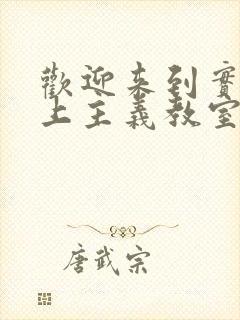 歡迎来到實
上主義教室
唐武宗